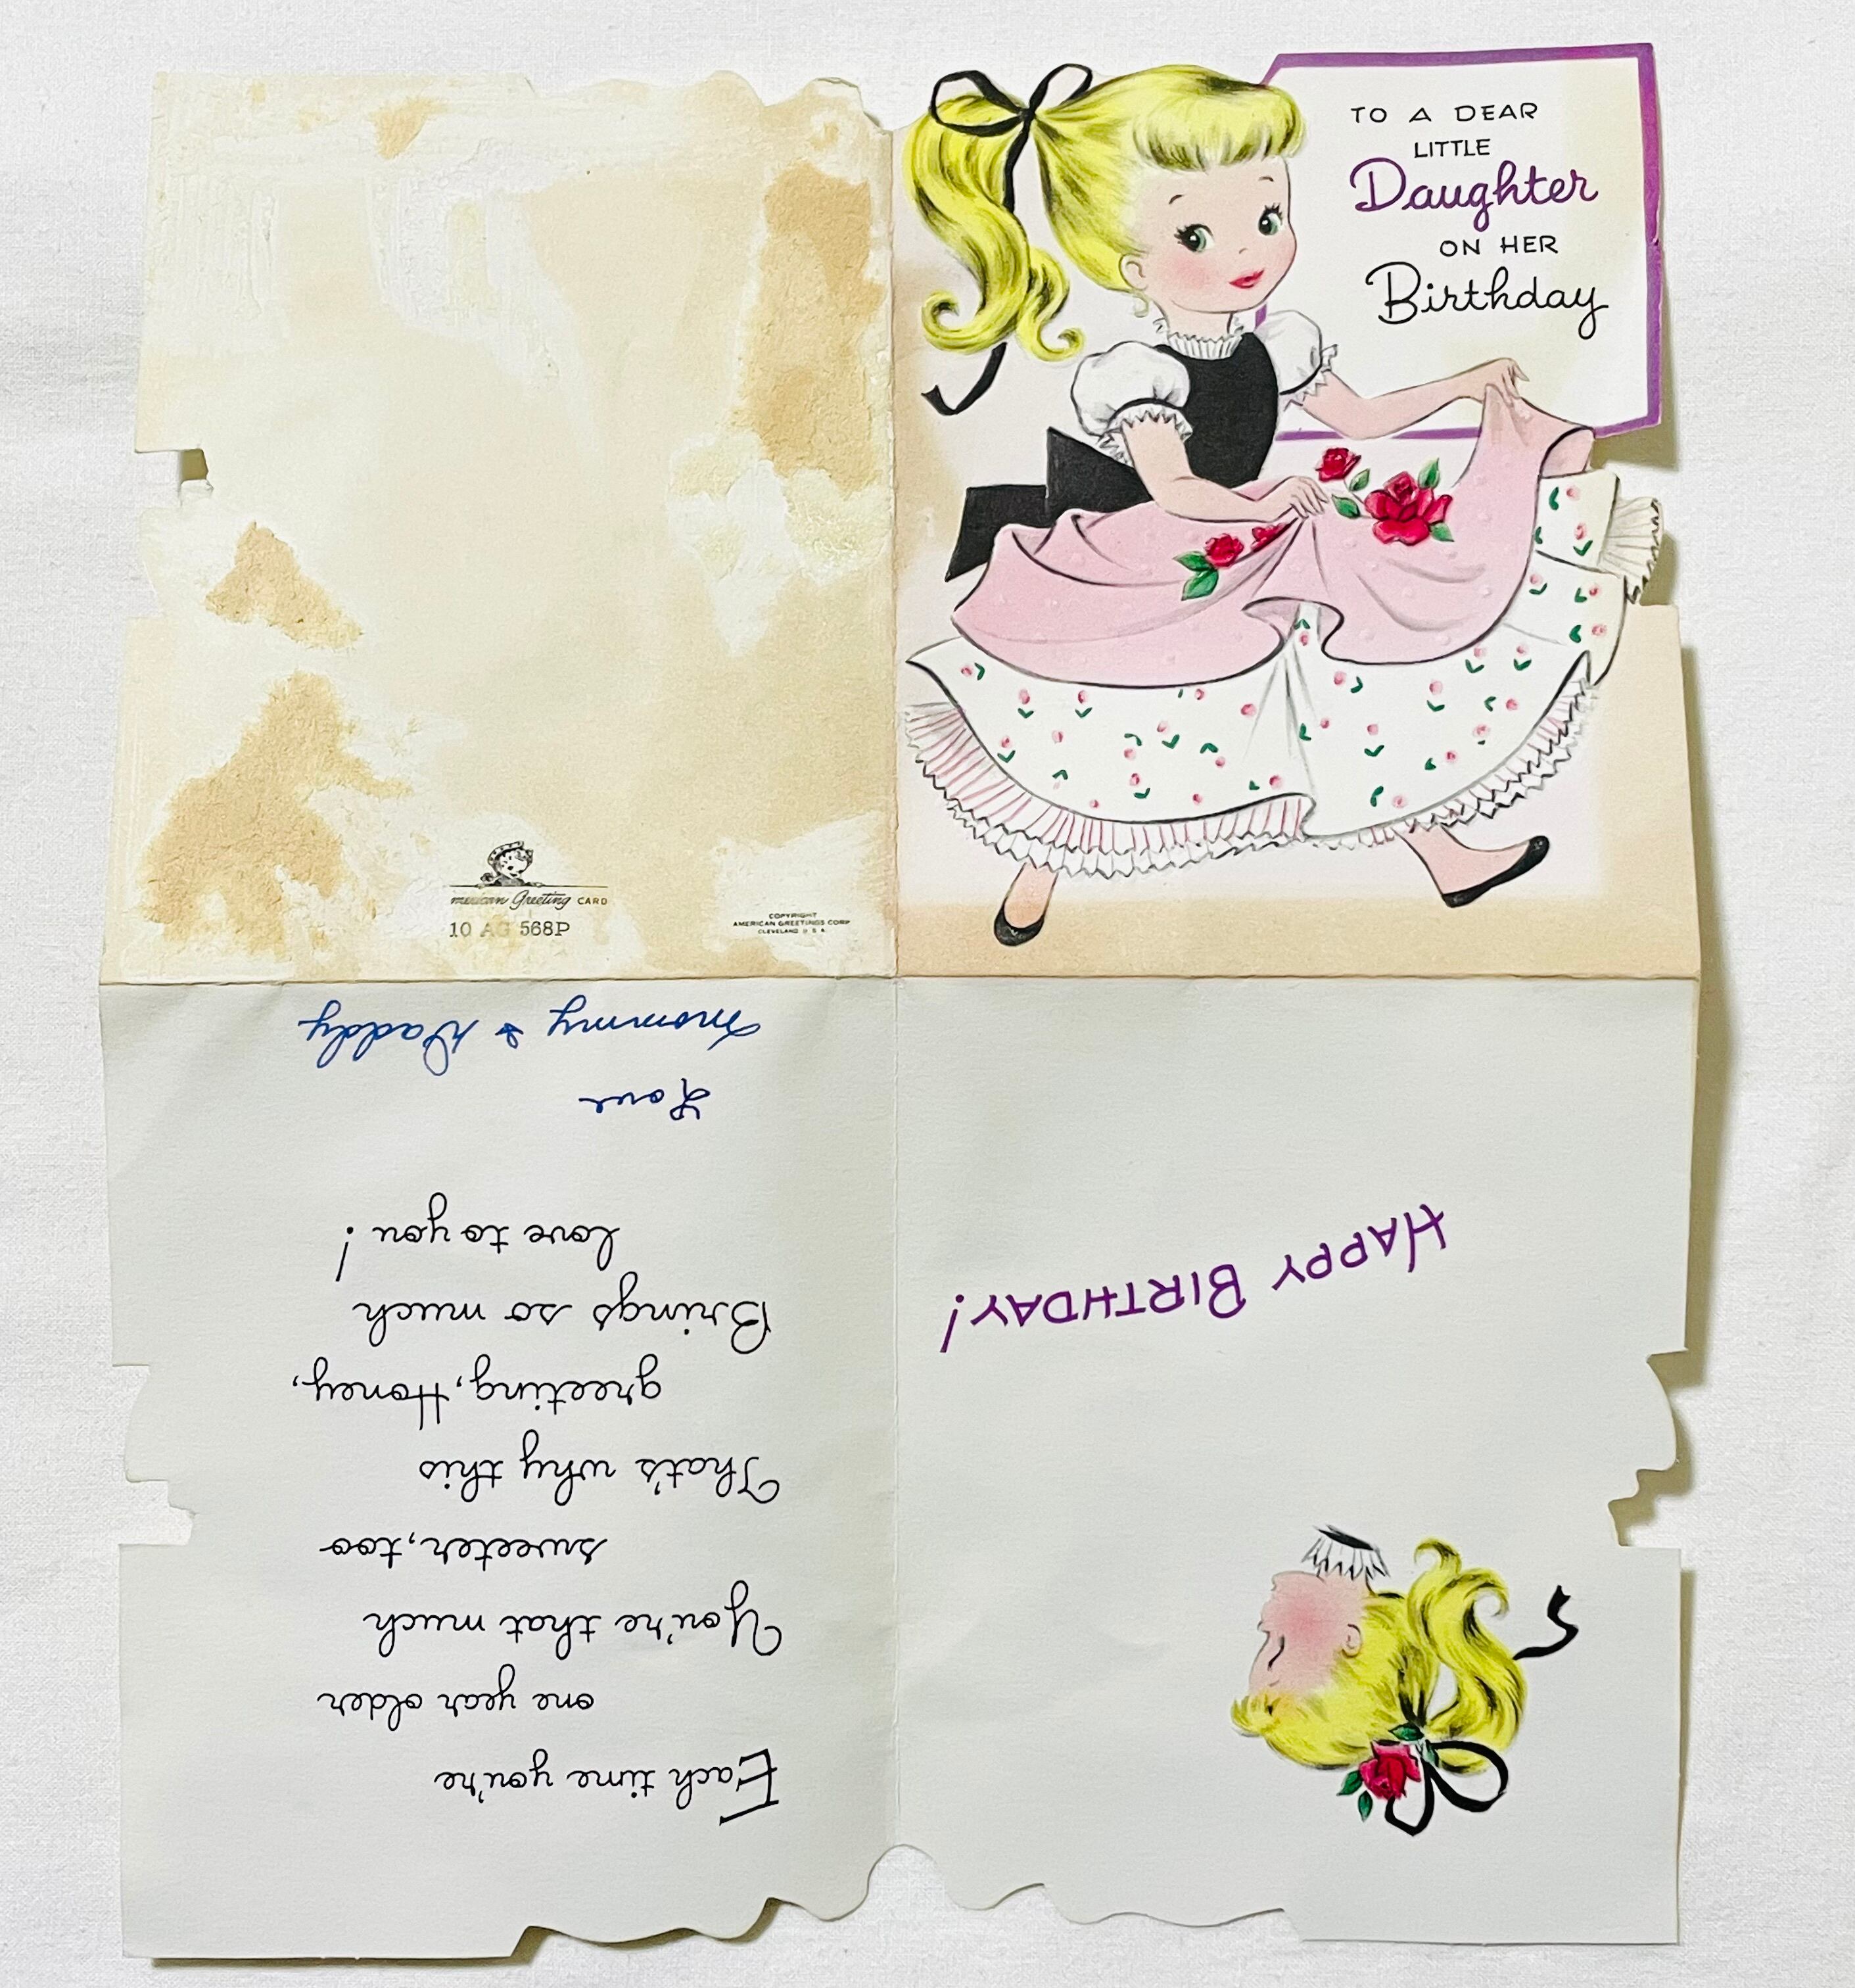 TO A DEAR
LITTLE
Daughter
ON HER
Birthday
merican Greeting CARD
10 AG 568P
COPYRIGHT
AMERICAN GREETINGS CORP
CLEVELAND U S A
HAPPY BIRTHDAY!
Each time you're
one year older
You're that much
sweeter, too
That's why this
greeting, Honey,
Brings so much
love to you!
Love
Mommy & Daddy